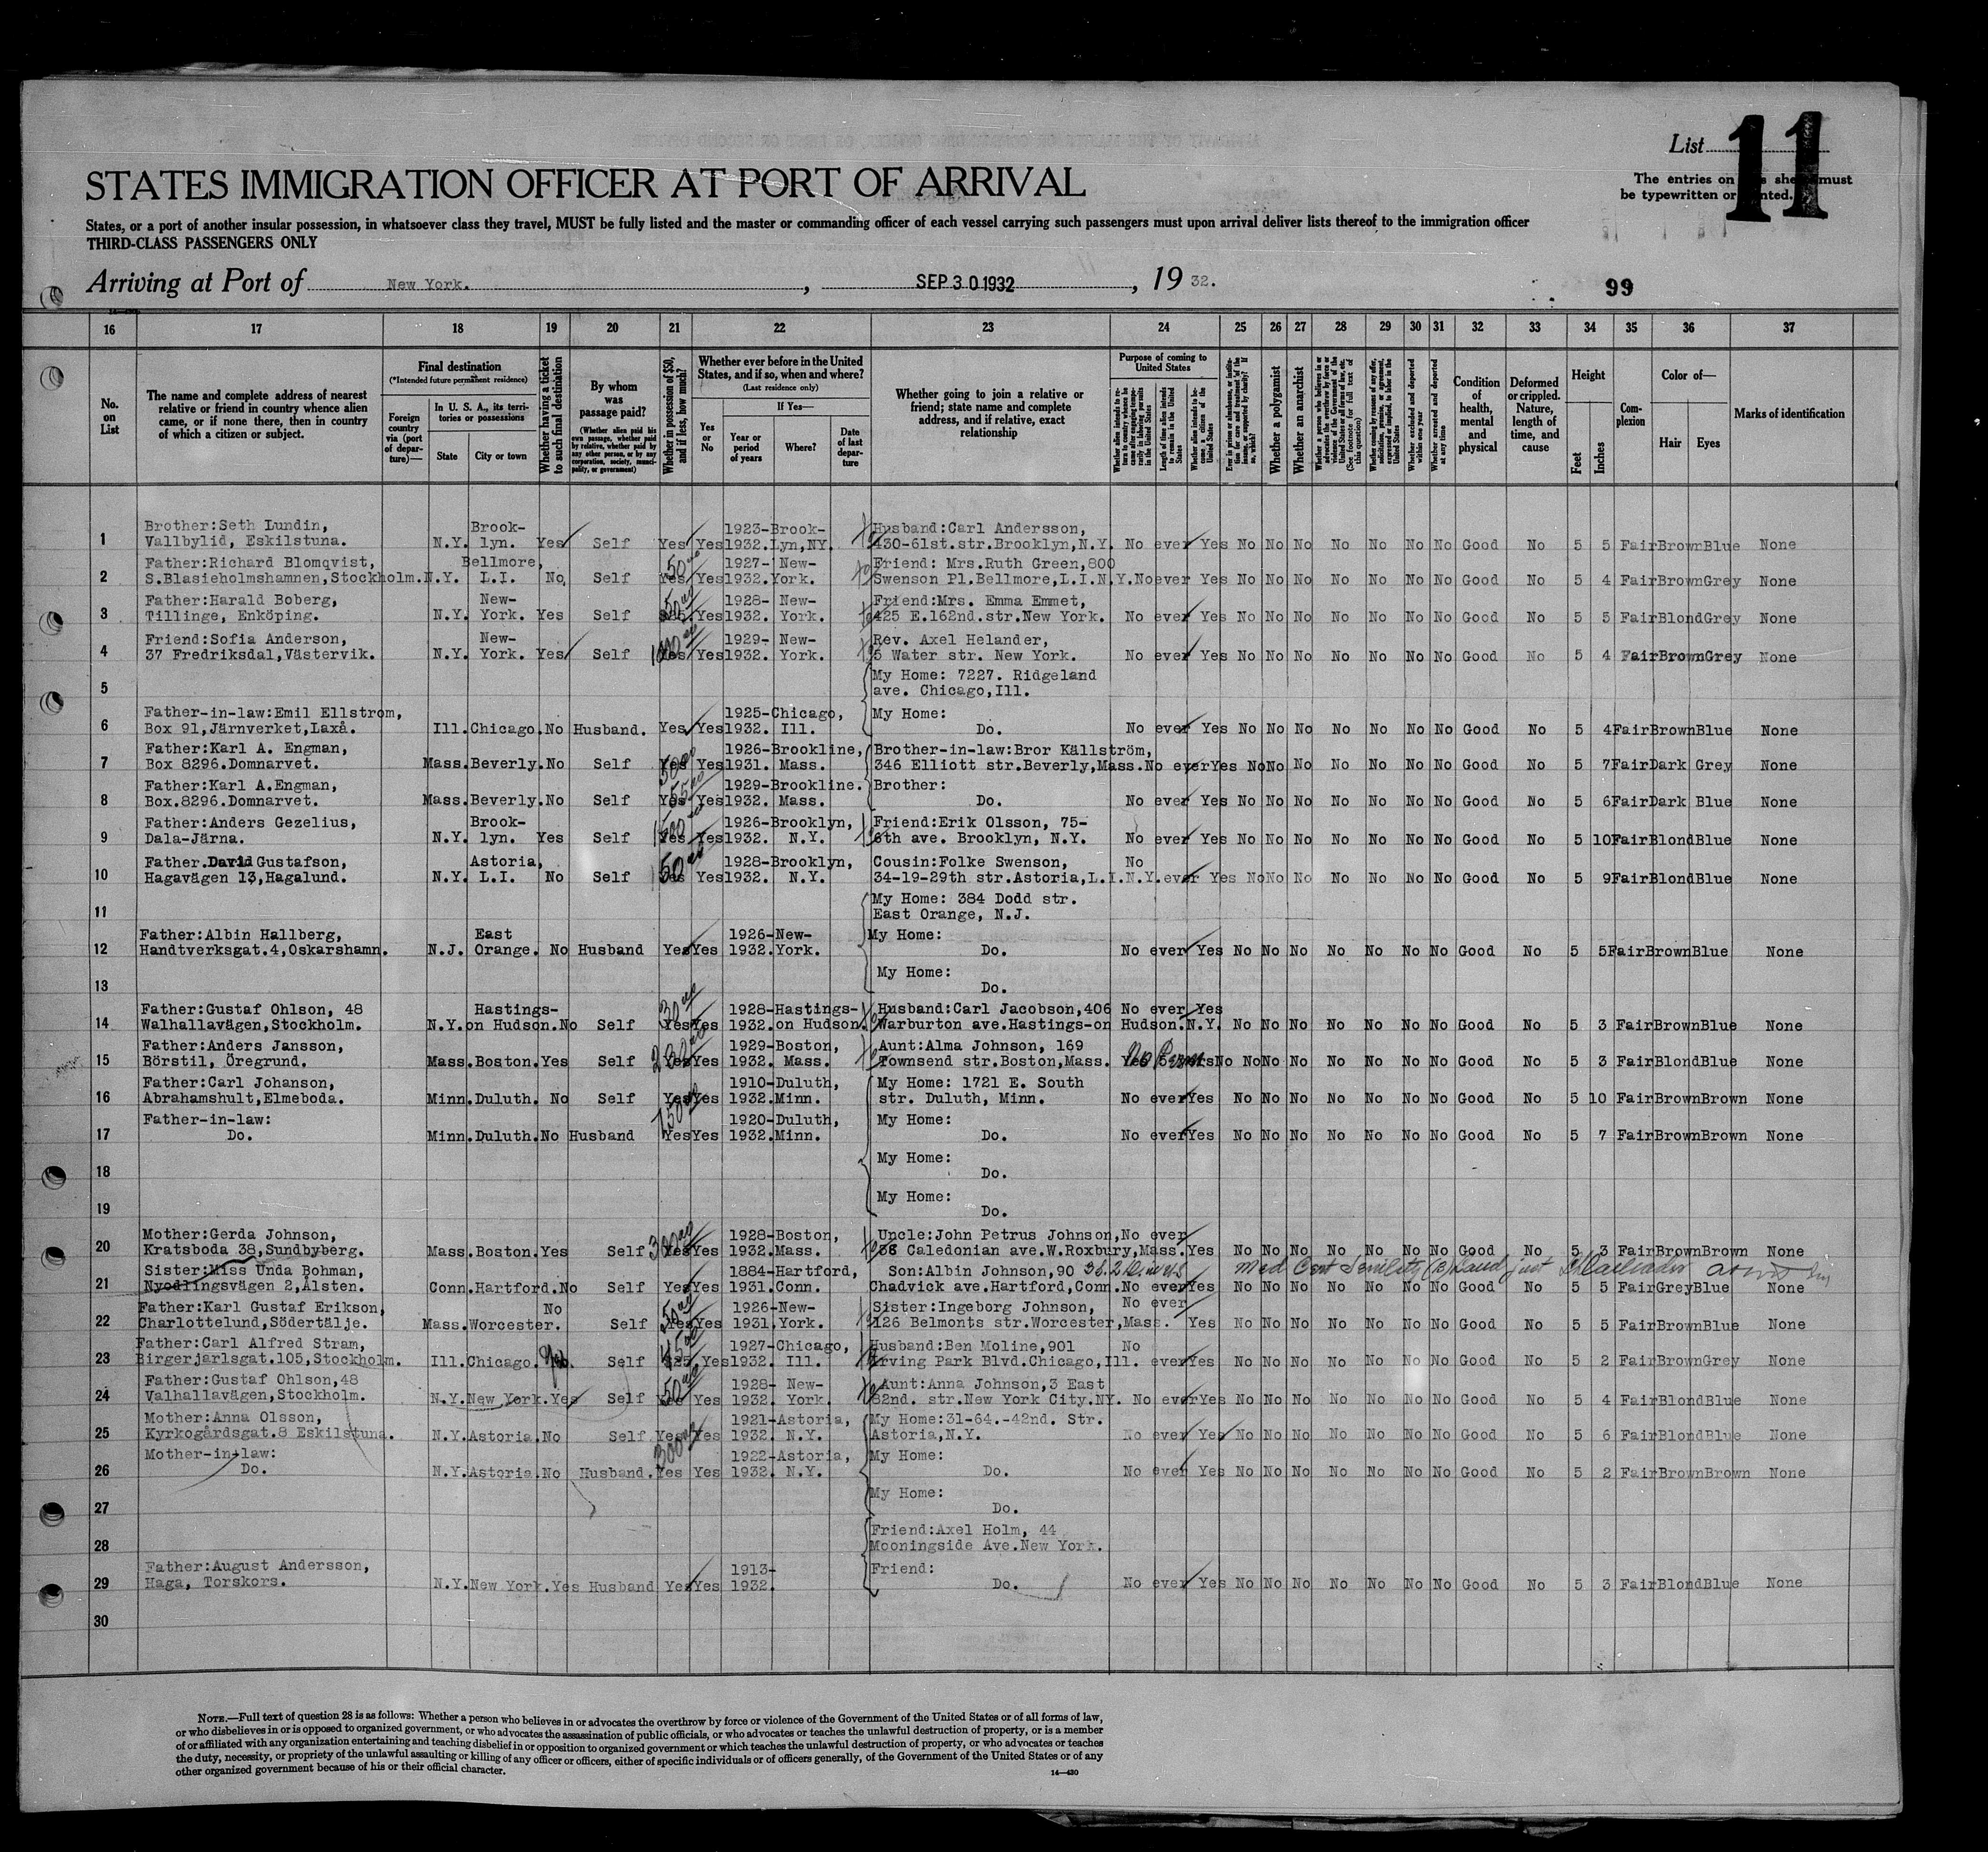 List 11
The entries on this sheet must
be typewritten or printed.
STATES IMMIGRATION OFFICER AT PORT OF ARRIVAL
States, or a port of another insular possession, in whatsoever class they travel, MUST be fully listed and the master or commanding officer of each vessel carrying such passengers must upon arrival deliver lists thereof to the immigration officer
THIRD-CLASS PASSENGERS ONLY
Arriving at Port of New York. , SEP 30 1932 , 19 32.
99
16 17 18 19 20 21 22 23 24 25 26 27 28 29 30 31 32 33 34 35 36 37
No. on List
The name and complete address of nearest relative or friend in country whence alien came, or if none there, then in country of which a citizen or subject.
Final destination
(*Intended future permanent residence)
Foreign country via (port of departure)—
In U. S. A., its territories or possessions
State
City or town
Whether having a ticket to such final destination
By whom was passage paid?
(Whether alien paid his own passage, whether paid by relative, whether paid by any other person, or by any corporation, society, municipality, or government)
Whether in possession of $50, and if less, how much?
Whether ever before in the United States, and if so, when and where?
(Last residence only)
Yes or No
If Yes—
Year or period of years
Where?
Date of last departure
Whether going to join a relative or friend; state name and complete address, and if relative, exact relationship
Purpose of coming to United States
Whether alien intends to return to country whence he came after engaging temporarily in laboring pursuits in the United States
Length of time alien intends to remain in the United States
Whether alien intends to become a citizen of the United States
Ever in prison or almshouse, or institution for care and treatment of the insane, or supported by charity? If so, which?
Whether a polygamist
Whether an anarchist
Whether a person who believes in or advocates the overthrow by force or violence of the Government of the United States or all forms of law, etc. (See footnote for full text of this question)
Whether coming by reason of any offer, solicitation, promise, or agreement, expressed or implied, to labor in the United States
Whether excluded and deported within one year
Whether arrested and deported at any time
Condition of health, mental and physical
Deformed or crippled. Nature, length of time, and cause
Height
Feet
Inches
Complexion
Color of—
Hair
Eyes
Marks of identification
Brother:Seth Lundin, Brook- 1923-Brook- Husband:Carl Andersson,
1 Vallbylid, Eskilstuna. N.Y. lyn. Yes Self Yes Yes 1932.Lyn,NY. 430-61st.str.Brooklyn,N.Y. No ever Yes No No No No No No No Good No 5 5 Fair Brown Blue None
Father:Richard Blomqvist, Bellmore, 50 1927- New- Friend: Mrs.Ruth Green,800
2 S.Blasieholmshamnen,Stockholm. N.Y. L.I. No, Self Yes Yes 1932.York. Swenson Pl.Bellmore,L.I.N.Y. No ever Yes No No No No No No No Good No 5 4 Fair Brown Grey None
Father:Harald Boberg, New- 50 1928- New- Friend:Mrs. Emma Emmet,
3 Tillinge, Enköping. N.Y. York. Yes Self Yes 1932. York. 425 E.162nd.str.New York. No ever Yes No No No No No No No Good No 5 5 Fair Blond Grey None
Friend:Sofia Anderson, New- 1929- New- Rev. Axel Helander,
4 37 Fredriksdal,Västervik. N.Y. York. Yes Self Yes Yes 1932. York. 5 Water str. New York. No ever Yes No No No No No No No Good No 5 4 Fair Brown Grey None
My Home: 7227. Ridgeland
5 ave. Chicago,Ill.
Father-in-law:Emil Ellström, 1925-Chicago, My Home:
6 Box 91,Järnverket,Laxå. Ill. Chicago. No Husband. Yes Yes 1932. Ill. Do. No ever Yes No No No No No No No Good No 5 4 Fair Brown Blue None
Father:Karl A. Engman, 1926-Brookline, Brother-in-law:Bror Källström,
7 Box 8296.Domnarvet. Mass. Beverly. No Self Yes Yes 1931. Mass. 346 Elliott str.Beverly,Mass. No ever Yes No No No No No No No Good No 5 7 Fair Dark Grey None
Father:Karl A.Engman, 1929-Brookline. Brother:
8 Box.8296.Domnarvet. Mass. Beverly. No Self Yes Yes 1932. Mass. Do. No ever Yes No No No No No No No Good No 5 6 Fair Dark Blue None
Father:Anders Gezelius, Brook- 1926-Brooklyn, Friend:Erik Olsson, 75-
9 Dala-Järna. N.Y. lyn. Yes Self Yes Yes 1932. N.Y. 6th ave. Brooklyn, N.Y. No ever Yes No No No No No No No Good No 5 10 Fair Blond Blue None
Father.David Gustafson, Astoria, 50 1928-Brooklyn, Cousin:Folke Swenson, No
10 Hagavägen 13,Hagalund. N.Y. L.I. No Self Yes Yes 1932. N.Y. 34-19-29th str.Astoria,L.I.N.Y. ever Yes No No No No No No No Good No 5 9 Fair Blond Blue None
My Home: 384 Dodd str.
11 East Orange, N.J.
Father:Albin Hallberg, East 1926-New- My Home:
12 Handtverksgat.4,Oskarshamn. N.J. Orange. No Husband Yes Yes 1932.York. Do. No ever Yes No No No No No No No Good No 5 5 Fair Brown Blue None
My Home:
13 Do.
Father:Gustaf Ohlson, 48 Hastings- 30 1928-Hastings- Husband:Carl Jacobson,406 No ever Yes
14 Walhallavägen,Stockholm. N.Y. on Hudson. No Self Yes Yes 1932.on Hudson. Warburton ave.Hastings-on Hudson.N.Y. No No No No No No No Good No 5 3 Fair Brown Blue None
Father:Anders Jansson, 1929-Boston, Aunt:Alma Johnson, 169
15 Börstil, Öregrund. Mass. Boston. Yes Self Yes Yes 1932. Mass. Townsend str.Boston,Mass. No Perm No No No No No No No Good No 5 3 Fair Blond Blue None
Father:Carl Johanson, 1910-Duluth, My Home: 1721 E. South
16 Abrahamshult,Elmeboda. Minn. Duluth. No Self Yes Yes 1932.Minn. str. Duluth, Minn. No ever Yes No No No No No No No Good No 5 10 Fair Brown Brown None
Father-in-law: 1920-Duluth, My Home:
17 Do. Minn. Duluth. No Husband Yes Yes 1932.Minn. Do. No ever Yes No No No No No No No Good No 5 7 Fair Brown Brown None
My Home:
18 Do.
My Home:
19 Do.
Mother:Gerda Johnson, 300 1928-Boston, Uncle:John Petrus Johnson, No ever
20 Kratsboda 38,Sundbyberg. Mass. Boston. Yes Self Yes Yes 1932.Mass. Caledonian ave.W.Roxbury,Mass. Yes No No No No No No No Good No 5 3 Fair Brown Brown None
Sister:Miss Unda Bohman, 1884-Hartford, Son:Albin Johnson,90 Med Cert Senility
21 Nyodlingsvägen 2,Ålsten. Conn. Hartford. No Self Yes Yes 1931.Conn. Chadvick ave.Hartford,Conn. No ever Yes No No No No No No No Good No 5 5 Fair Grey Blue None
Father:Karl Gustaf Erikson, No 50 1926-New- Sister:Ingeborg Johnson, No ever
22 Charlottelund,Södertälje. Mass. Worcester. Self Yes Yes 1931.York. 126 Belmonts str.Worcester,Mass. Yes No No No No No No No Good No 5 5 Fair Brown Blue None
Father:Carl Alfred Stram, 1927-Chicago, Husband:Ben Moline,901 No
23 Birgerjarlsgat.105,Stockholm. Ill. Chicago. Yes Self Yes 1932. Ill. Irving Park Blvd.Chicago,Ill. ever Yes No No No No No No No Good No 5 2 Fair Brown Grey None
Father:Gustaf Ohlson,48 50 1928- New- Aunt:Anna Johnson,3 East
24 Valhallavägen,Stockholm. N.Y. New York. Yes Self Yes Yes 1932. York. 82nd. str.New York City.NY. No ever Yes No No No No No No No Good No 5 4 Fair Blond Blue None
Mother:Anna Olsson, 1921-Astoria, My Home:31-64.-42nd. Str.
25 Kyrkogårdsgat.8 Eskilstuna. N.Y. Astoria. No Self Yes Yes 1932. N.Y. Astoria,N.Y. No ever Yes No No No No No No No Good No 5 6 Fair Blond Blue None
Mother-in-law: 300 1922-Astoria, My Home:
26 Do. N.Y. Astoria. No Husband. Yes Yes 1932. N.Y. Do. No ever Yes No No No No No No No Good No 5 2 Fair Brown Brown None
My Home:
27 Do.
Friend:Axel Holm, 44
28 Mooningside Ave.New York.
Father:August Andersson, 1913- Friend:
29 Haga, Torskors. N.Y. New York. Yes Husband Yes Yes 1932. Do. No ever Yes No No No No No No No Good No 5 3 Fair Blond Blue None
30
NOTE.—Full text of question 28 is as follows: Whether a person who believes in or advocates the overthrow by force or violence of the Government of the United States or of all forms of law,
or who disbelieves in or is opposed to organized government, or who advocates the assassination of public officials, or who advocates or teaches the unlawful destruction of property, or is a member
of or affiliated with any organization entertaining and teaching disbelief in or opposition to organized government or which teaches the unlawful destruction of property, or who advocates or teaches
the duty, necessity, or propriety of the unlawful assaulting or killing of any officer or officers, either of specific individuals or of officers generally, of the Government of the United States or of any
other organized government because of his or their official character.
14—430